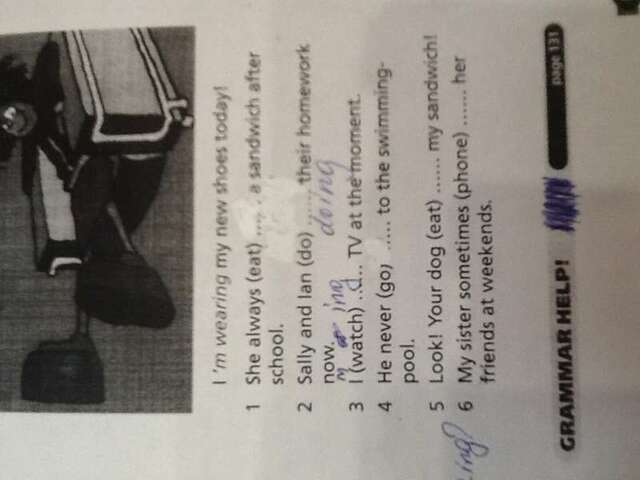 I 'm wearing my new shoes today!
1 She always (eat) ...... a sandwich after
school.
2 Sally and Ian (do) ...... their homework
doing
now.
ing
3 I (watch) ...... TV at the moment.
4 He never (go) ...... to the swimming-
pool.
5 Look! Your dog (eat) ...... my sandwich!
6 My sister sometimes (phone) ...... her
friends at weekends.
GRAMMAR HELP! page 131